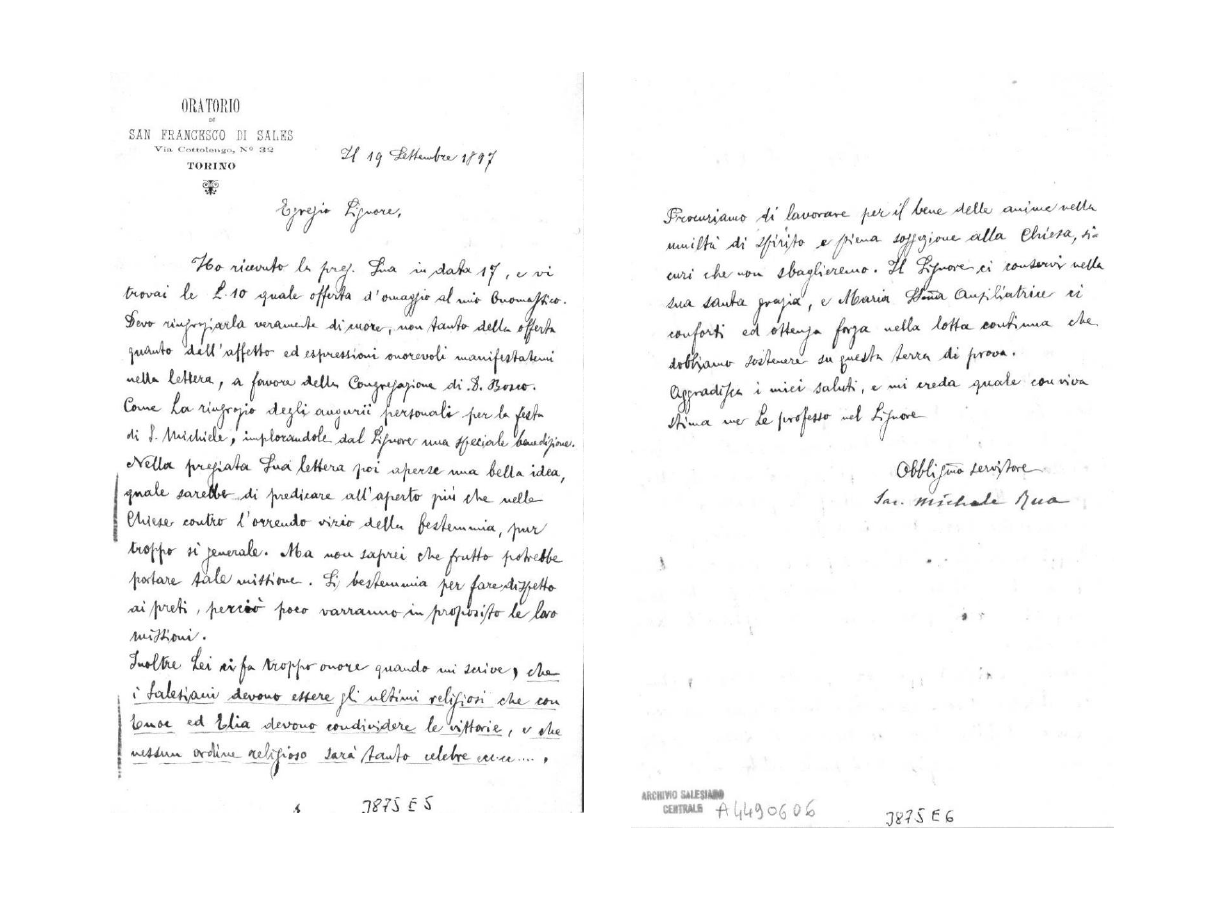 ORATORIO
DI
SAN FRANCESCO DI SALES
Via Cottolengo, Nº 32
TORINO
Il 19 Settembre 1897
Egregio Signore,
Ho ricevuto la preg. Sua in data 17, e vi
trovai le £. 10 quale offerta d'omaggio al mio Onomastico.
Devo ringraziarla veramente di cuore, non tanto della offerta
quanto dell'affetto ed espressioni onorevoli manifestatemi
nella lettera, a favore della Congregazione di D. Bosco.
Come La ringrazio degli augurii personali per la festa
di S. Michele, implorandole dal Signore una speciale benedizione.
Nella pregiata Sua lettera poi aperse una bella idea,
quale sarebbe di predicare all'aperto più che nelle
Chiese contro l'orrendo vizio della bestemmia, pur
troppo sì generale. Ma non saprei che frutto potrebbe
portare tale missione. Si bestemmia per fare dispetto
ai preti, perciò poco varranno in proposito le loro
missioni.
Inoltre Lei ci fa troppo onore quando mi scrive, che
i Salesiani devono essere gli ultimi religiosi che con
Enoc ed Elia devono condividere le vittorie, e che
nessun ordine religioso sarà tanto celebre ecc....,
J875 E5
Procuriamo di lavorare per il bene delle anime nella
umiltà di spirito e piena soggezione alla Chiesa, si-
curi che non sbaglieremo. Il Signore ci conservi nella
sua santa grazia, e Maria SSma Ausiliatrice ci
conforti ed ottenga forza nella lotta continua che
dobbiamo sostenere su questa terra di prova.
Aggradisca i miei saluti, e mi creda quale con viva
stima me Le professo nel Signore
Obbligmo servitore
Sac. Michele Rua
ARCHIVIO SALESIANO
CENTRALE A4490606
J875 E6